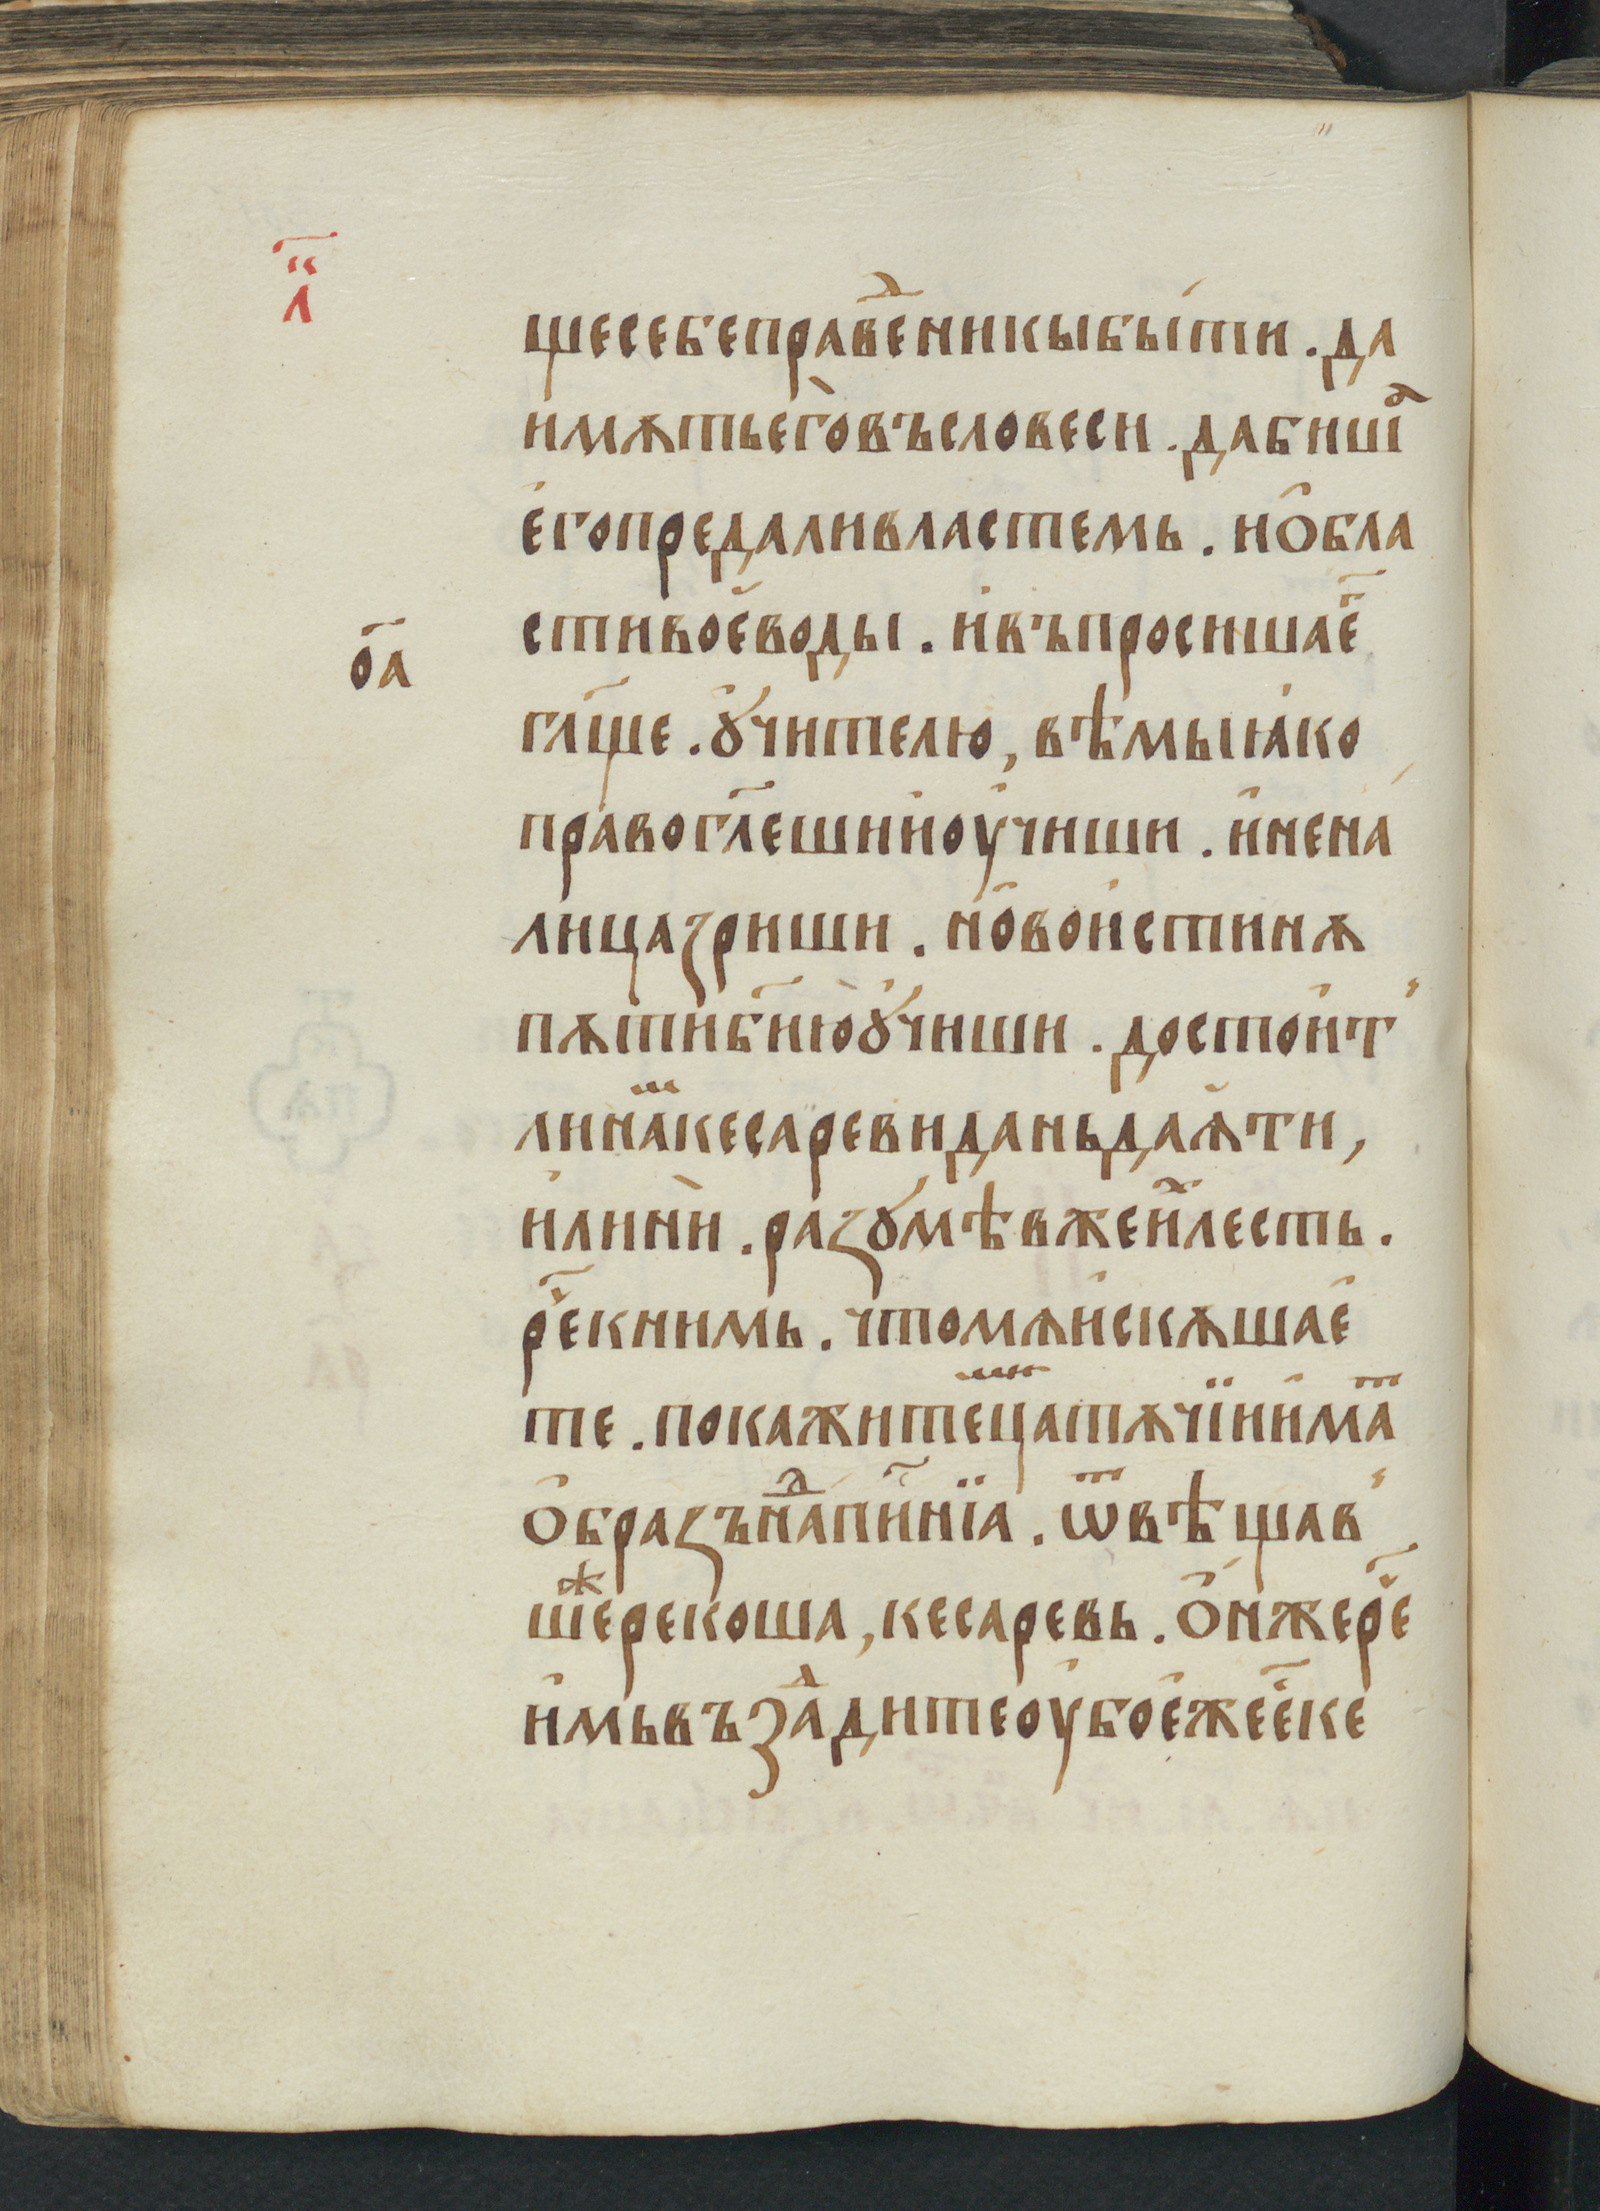 л҃
щесебепраⷡ҇еникыбы́ти . да
имѫтьего̀въсловеси . дабиша
е҆гопредаливластемь . ноⷪ҇бла
стивое҆воды . и҆въпросишае҆҃
о҃а
гл҃ще . ꙋ҆́чителю , вѣмыꙗ҆ко
правогл҃ешиио҆учиши . и҆нена́
лицазриши . но҆вои҆стинѫ
пѫтиб҃ию̀ꙋ҆чиши . достои҆т̾
линаⷨ҇кесаревиданьдаꙗ҆ти ,
и҆лини̏ . разꙋмѣвжеиⷯ҇лесть .
реⷱ҇книмь . чтомѧи҆скѫшае҆
те . покажитемицатѫчїи҆и҆маⷮ
ѻ҆бразънаⷣпиⷭ҇нїа . ѿвѣщав̾
шеⷤрекоша , кесаревь . ѻ҆нжереⷱ҇
и҆мьвъзⷣадитеоу҆бое҆жееⷭ҇ке